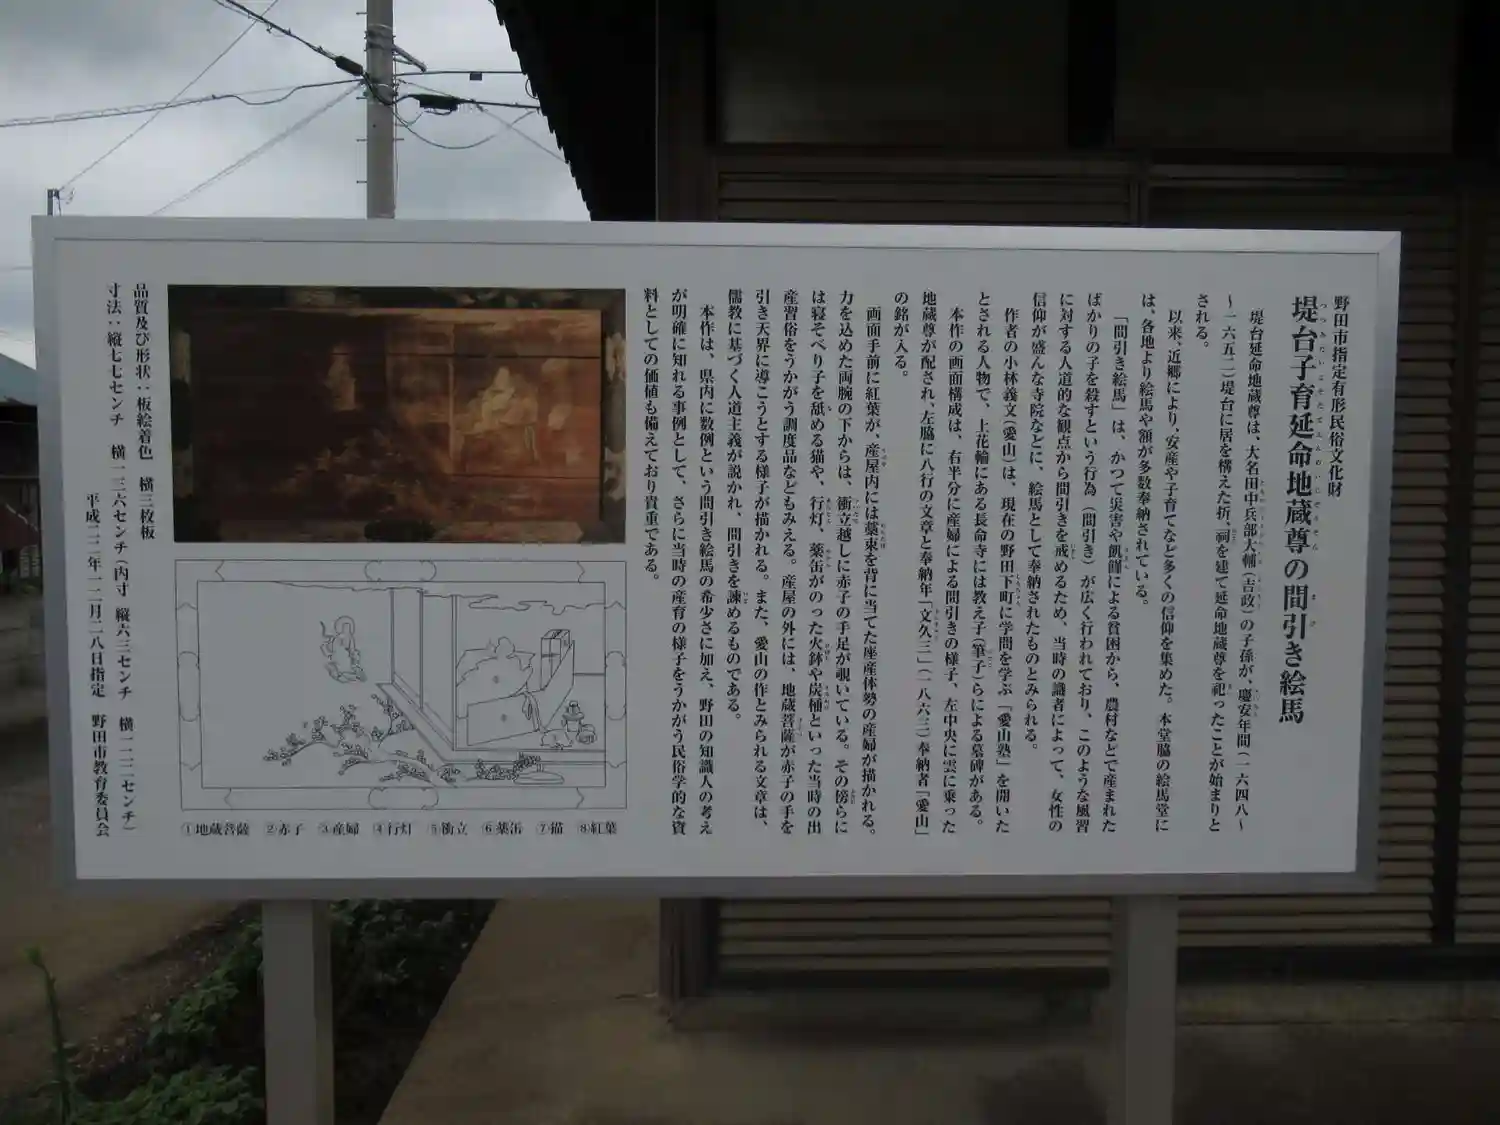 野田市指定有形民俗文化財
堤台子育延命地蔵尊の間引き絵馬
堤台延命地蔵尊は、大名田中兵部大輔(吉政)の子孫が、慶安年間(一六四八〜
〜一六五二)堤台に居を構えた折、祠を建て延命地蔵尊を祀ったことが始まりと
される。
以来、近郷により、安産や子育てなど多くの信仰を集めた。本堂脇の絵馬堂に
は、各地より絵馬や額が多数奉納されている。
「間引き絵馬」は、かつて災害や飢饉による貧困から、農村などで産まれた
ばかりの子を殺すという行為(間引き)が広く行われており、このような風習
に対する人道的な観点から間引きを戒めるため、当時の識者によって、女性の
信仰が盛んな寺院などに、絵馬として奉納されたものとみられる。
作者の小林義文(愛山)は、現在の野田下町に学問を学ぶ「愛山塾」を開いた
とされる人物で、上花輪にある長命寺には教え子(筆子)らによる墓碑がある。
本作の画面構成は、右半分に産婦による間引きの様子、左中央に雲に乗った
地蔵尊が配され、左脇に八行の文章と奉納年「文久三」(一八六三)奉納者「愛山」
の銘が入る。
画面手前に紅葉が、産屋内には藁束を背に当てた座産体勢の産婦が描かれる。
力を込めた両腕の下からは、衝立越しに赤子の手足が覗いている。その傍らに
は寝そべり子を舐める猫や、行灯、薬缶がのった火鉢や炭桶といった当時の出
産習俗をうかがう調度品などもみえる。産屋の外には、地蔵菩薩が赤子の手を
引き天界に導こうとする様子が描かれる。また、愛山の作とみられる文章は、
儒教に基づく人道主義が説かれ、間引きを諫めるものである。
本作は、県内に数例という間引き絵馬の希少さに加え、野田の知識人の考え
が明確に知れる事例として、さらに当時の産育の様子をうかがう民俗学的な資
料としての価値も備えており貴重である。
①地蔵菩薩 ②赤子 ③産婦 ④行灯 ⑤衝立 ⑥薬缶 ⑦猫 ⑧紅葉
品質及び形状：板絵着色 横三枚板
寸法：縦七七センチ 横一三六センチ(内寸 縦六三センチ 横一二二センチ)
平成二二年一二月二八日指定 野田市教育委員会